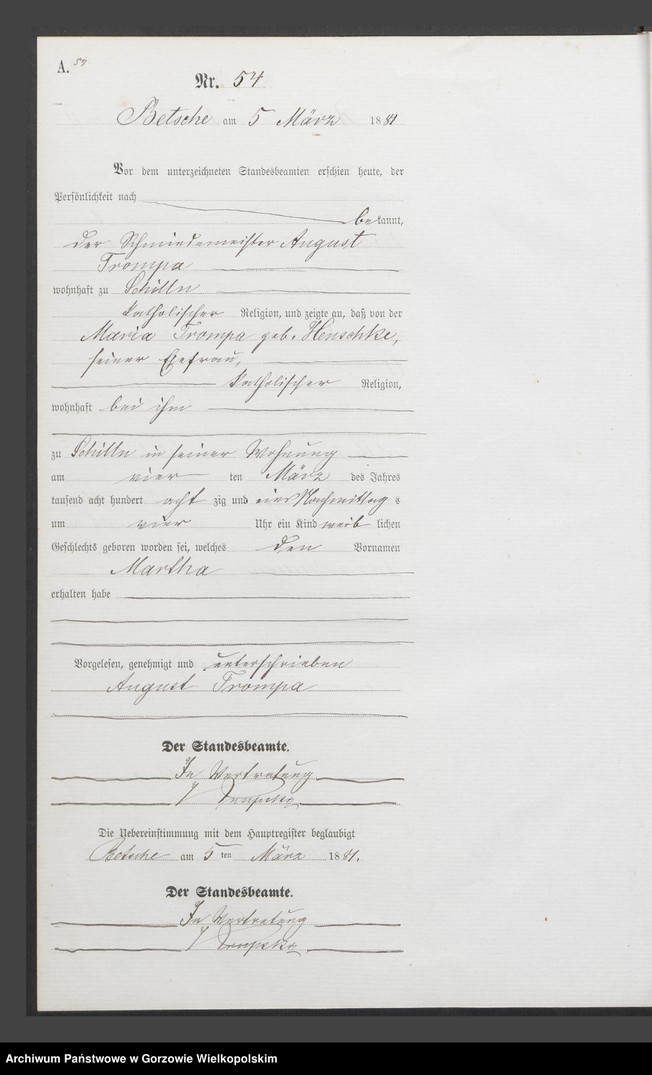 A. 54
Nr. 54
Betsche am 5 März 1881
Vor dem unterzeichneten Standesbeamten erschien heute, der
Persönlichkeit nach
bekannt,
der Schmiedemeister August
Trompa
wohnhaft zu Schilln
katholischer Religion, und zeigte an, daß von der
Maria Trompa geb. Henschke,
seiner Ehefrau,
katholischer Religion,
wohnhaft bei ihm
zu Schilln in seiner Wohnung
am vier ten März des Jahres
tausend acht hundert acht zig und eins Nachmittag s
um vier Uhr ein Kind weib lichen
Geschlechts geboren worden sei, welches den Vornamen
Martha
erhalten habe
Vorgelesen, genehmigt und unterschrieben
August Trompa
Der Standesbeamte.
In Vertretung
Die Uebereinstimmung mit dem Hauptregister beglaubigt
Betsche am 5 ten März 1881.
Der Standesbeamte.
In Vertretung
Archiwum Państwowe w Gorzowie Wielkopolskim